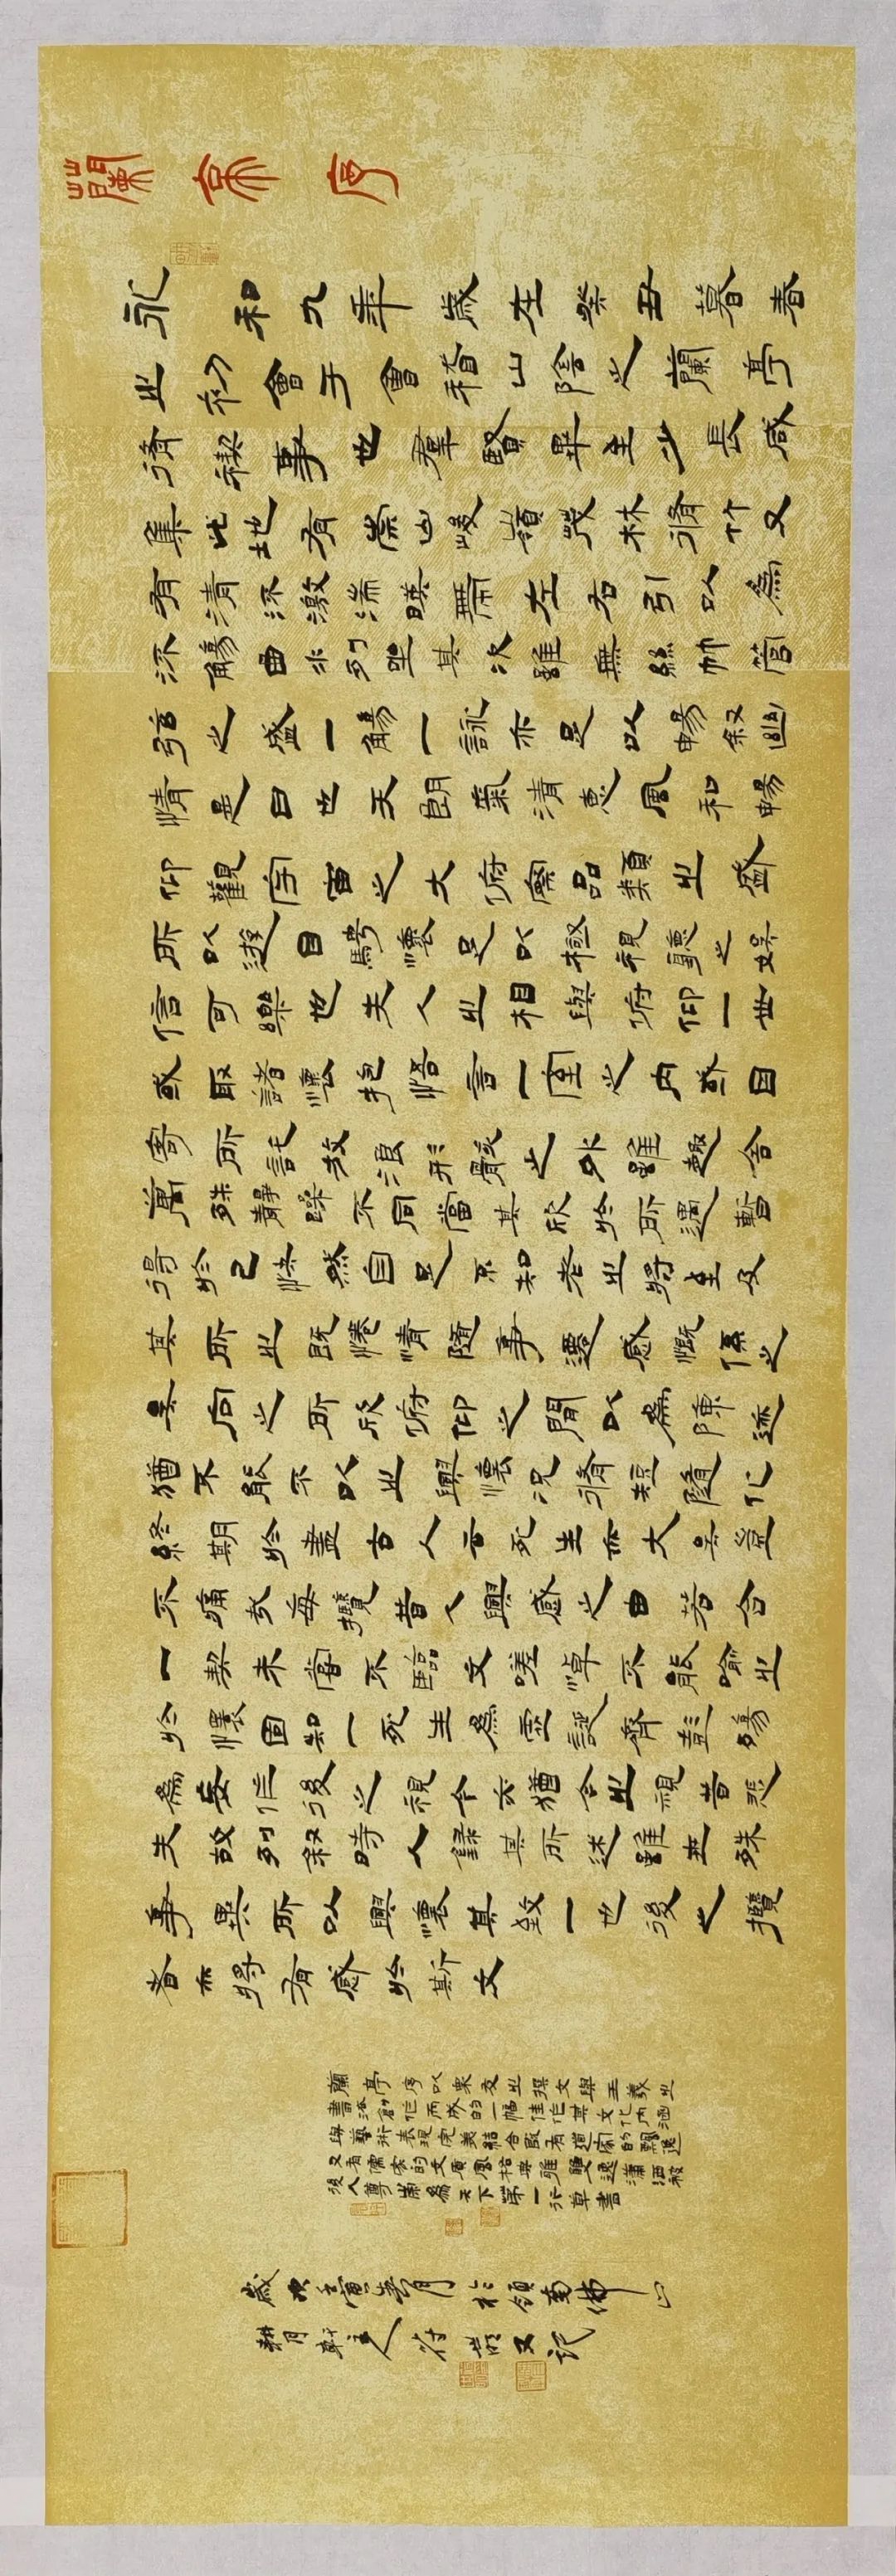 蘭亭序
永和九年歲在癸丑暮春
之初會于會稽山陰之蘭亭
脩禊事也羣賢畢至少長咸
集此地有崇山峻嶺茂林脩竹又
有清流激湍暎帶左右引以爲
流觴曲水列坐其次雖無絲竹管
弦之盛一觴一詠亦足以暢敘幽
情是日也天朗氣清惠風和暢
仰觀宇宙之大俯察品類之盛
所以遊目騁懷足以極視聽之娛
信可樂也夫人之相與俯仰一世
或取諸懷抱悟言一室之內或因
寄所託放浪形骸之外雖趣舍
萬殊靜躁不同當其欣於所遇暫
得於己快然自足不知老之將至及
其所之既惓情隨事遷感慨係之
矣向之所欣俯仰之間以爲陳迹
猶不能不以之興懷況脩短隨化
終期於盡古人云死生亦大矣豈
不痛哉每攬昔人興感之由若合
一契未嘗不臨文嗟悼不能喻之
於懷固知一死生爲虛誕齊彭殤
爲妄作後之視今亦猶今之視昔悲
夫故列敘時人錄其所述雖世殊
事異所以興懷其致一也後之攬
者亦將有感於斯文
蘭亭序以衆友之撰文與王羲之
書法創作而成的一幅佳作其文化內涵
與藝術表現完美結合既有道家的飄逸
又有儒家的文質風格典雅雙逸瀟洒被
後人尊崇爲天下第一行草書
歲次壬寅月於領南佛山
耕月軒主人符又記